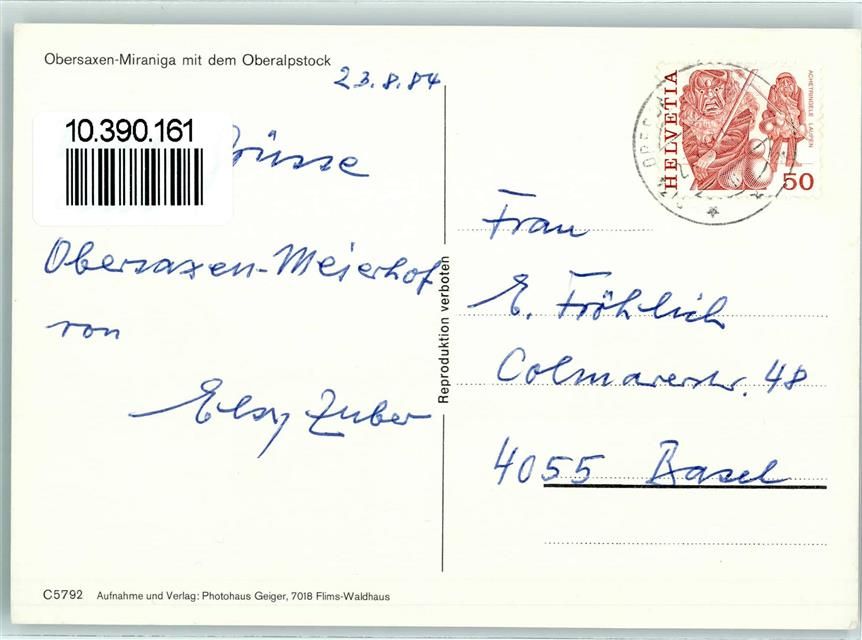 Obersaxen-Miraniga mit dem Oberalpstock
23.8.84
10.390.161
Grüsse
Obersaxen-Meierhof
von
Elsy Zuber
Reproduktion verboten
HELVETIA
ACHETRINGELE LAUPEN
50
Frau
E. Fröhlich
Colmarerstr. 48
4055 Basel
C5792 Aufnahme und Verlag: Photohaus Geiger, 7018 Flims-Waldhaus